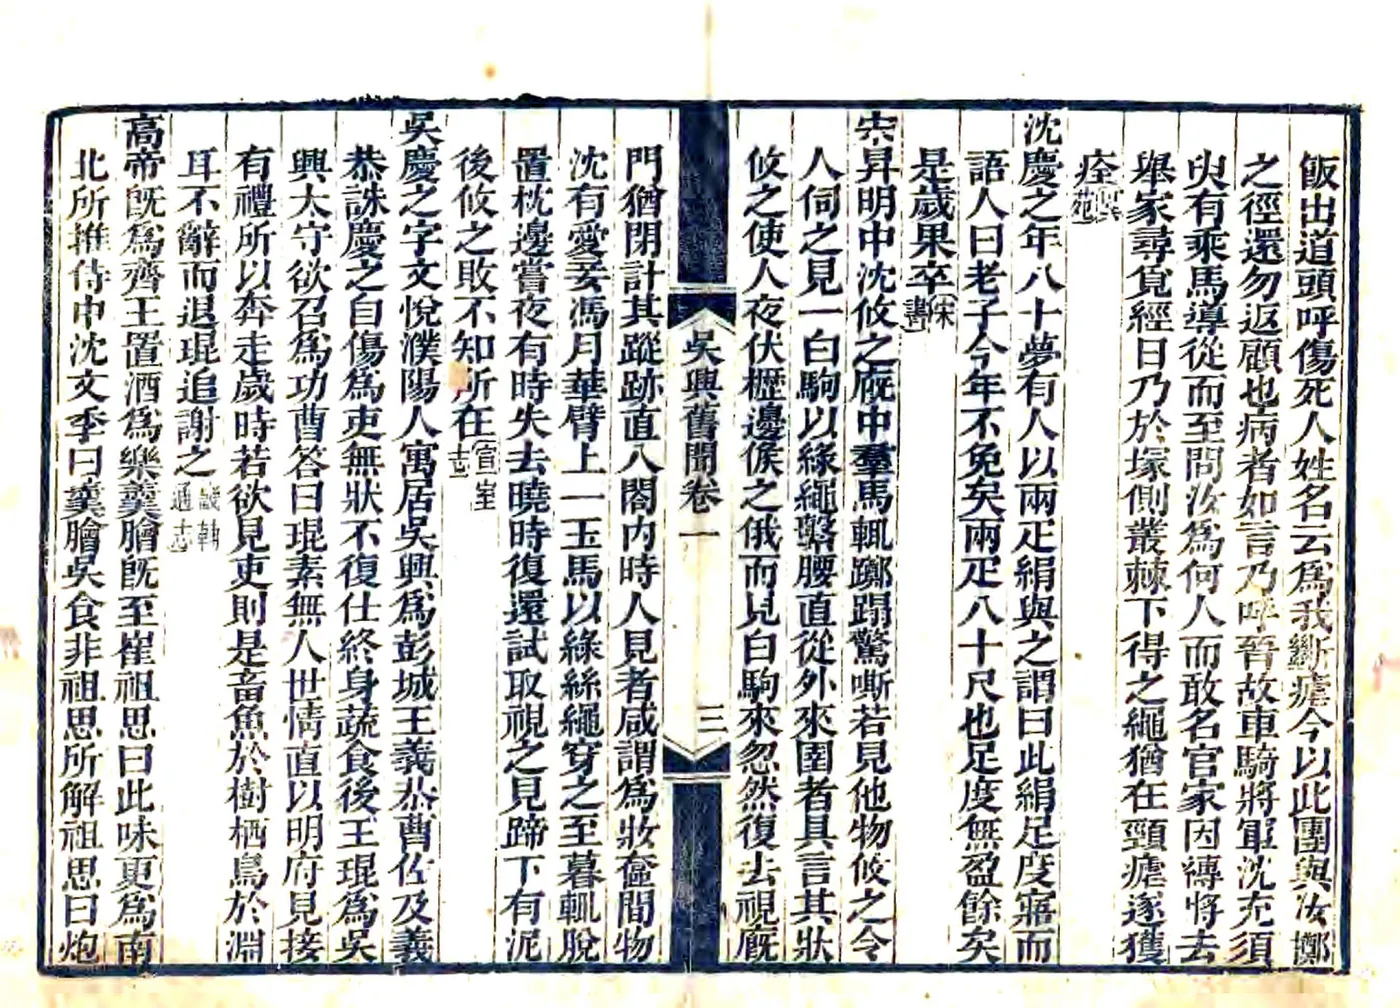 飯出道頭呼傷死人姓名云爲我斷瘧今以此團與汝擲
之徑還勿返顧也病者如言乃呼晉故車騎將軍沈充須
臾有乘馬導從而至問汝爲何人而敢名官家因縛將去
舉家尋覓經日乃於塚側叢棘下得之繩猶在頸瘧遂獲
痊異苑
沈慶之年八十夢有人以兩疋絹與之謂曰此絹足度寤而
語人曰老子今年不免矣兩疋八十尺也足度無盈餘矣
是歲果卒宋書
宋昇明中沈攸之廐中羣馬輒躑蹋驚嘶若見他物攸之令
人伺之見一白駒以綠繩繫腰直從外來圉者具言其狀
攸之使人夜伏櫪邊俟之俄而見白駒來忽然復去視廐
吳興舊聞卷一
三
門猶閉計其蹤跡直入閤內時人見者咸謂爲妝奩間物
沈有愛妾馮月華臂上一玉馬以綠絲繩穿之至暮輒脫
置枕邊嘗夜有時失去曉時復還試取視之見蹄下有泥
後攸之敗不知所在宣室志
吳慶之字文悅濮陽人寓居吳興爲彭城王義恭曹佐及義
恭誅慶之自傷爲吏無狀不復仕終身蔬食後王琨爲吳
興太守欲召爲功曹答曰琨素無人世情直以明府見接
有禮所以奔走歲時若欲見吏則是畜魚於樹栖鳥於淵
耳不辭而退琨追謝之談軸通志
高帝旣爲齊王置酒爲樂羹膾旣至崔祖思曰此味更爲南
北所推侍中沈文季曰羹膾吳食非祖思所解祖思曰炮